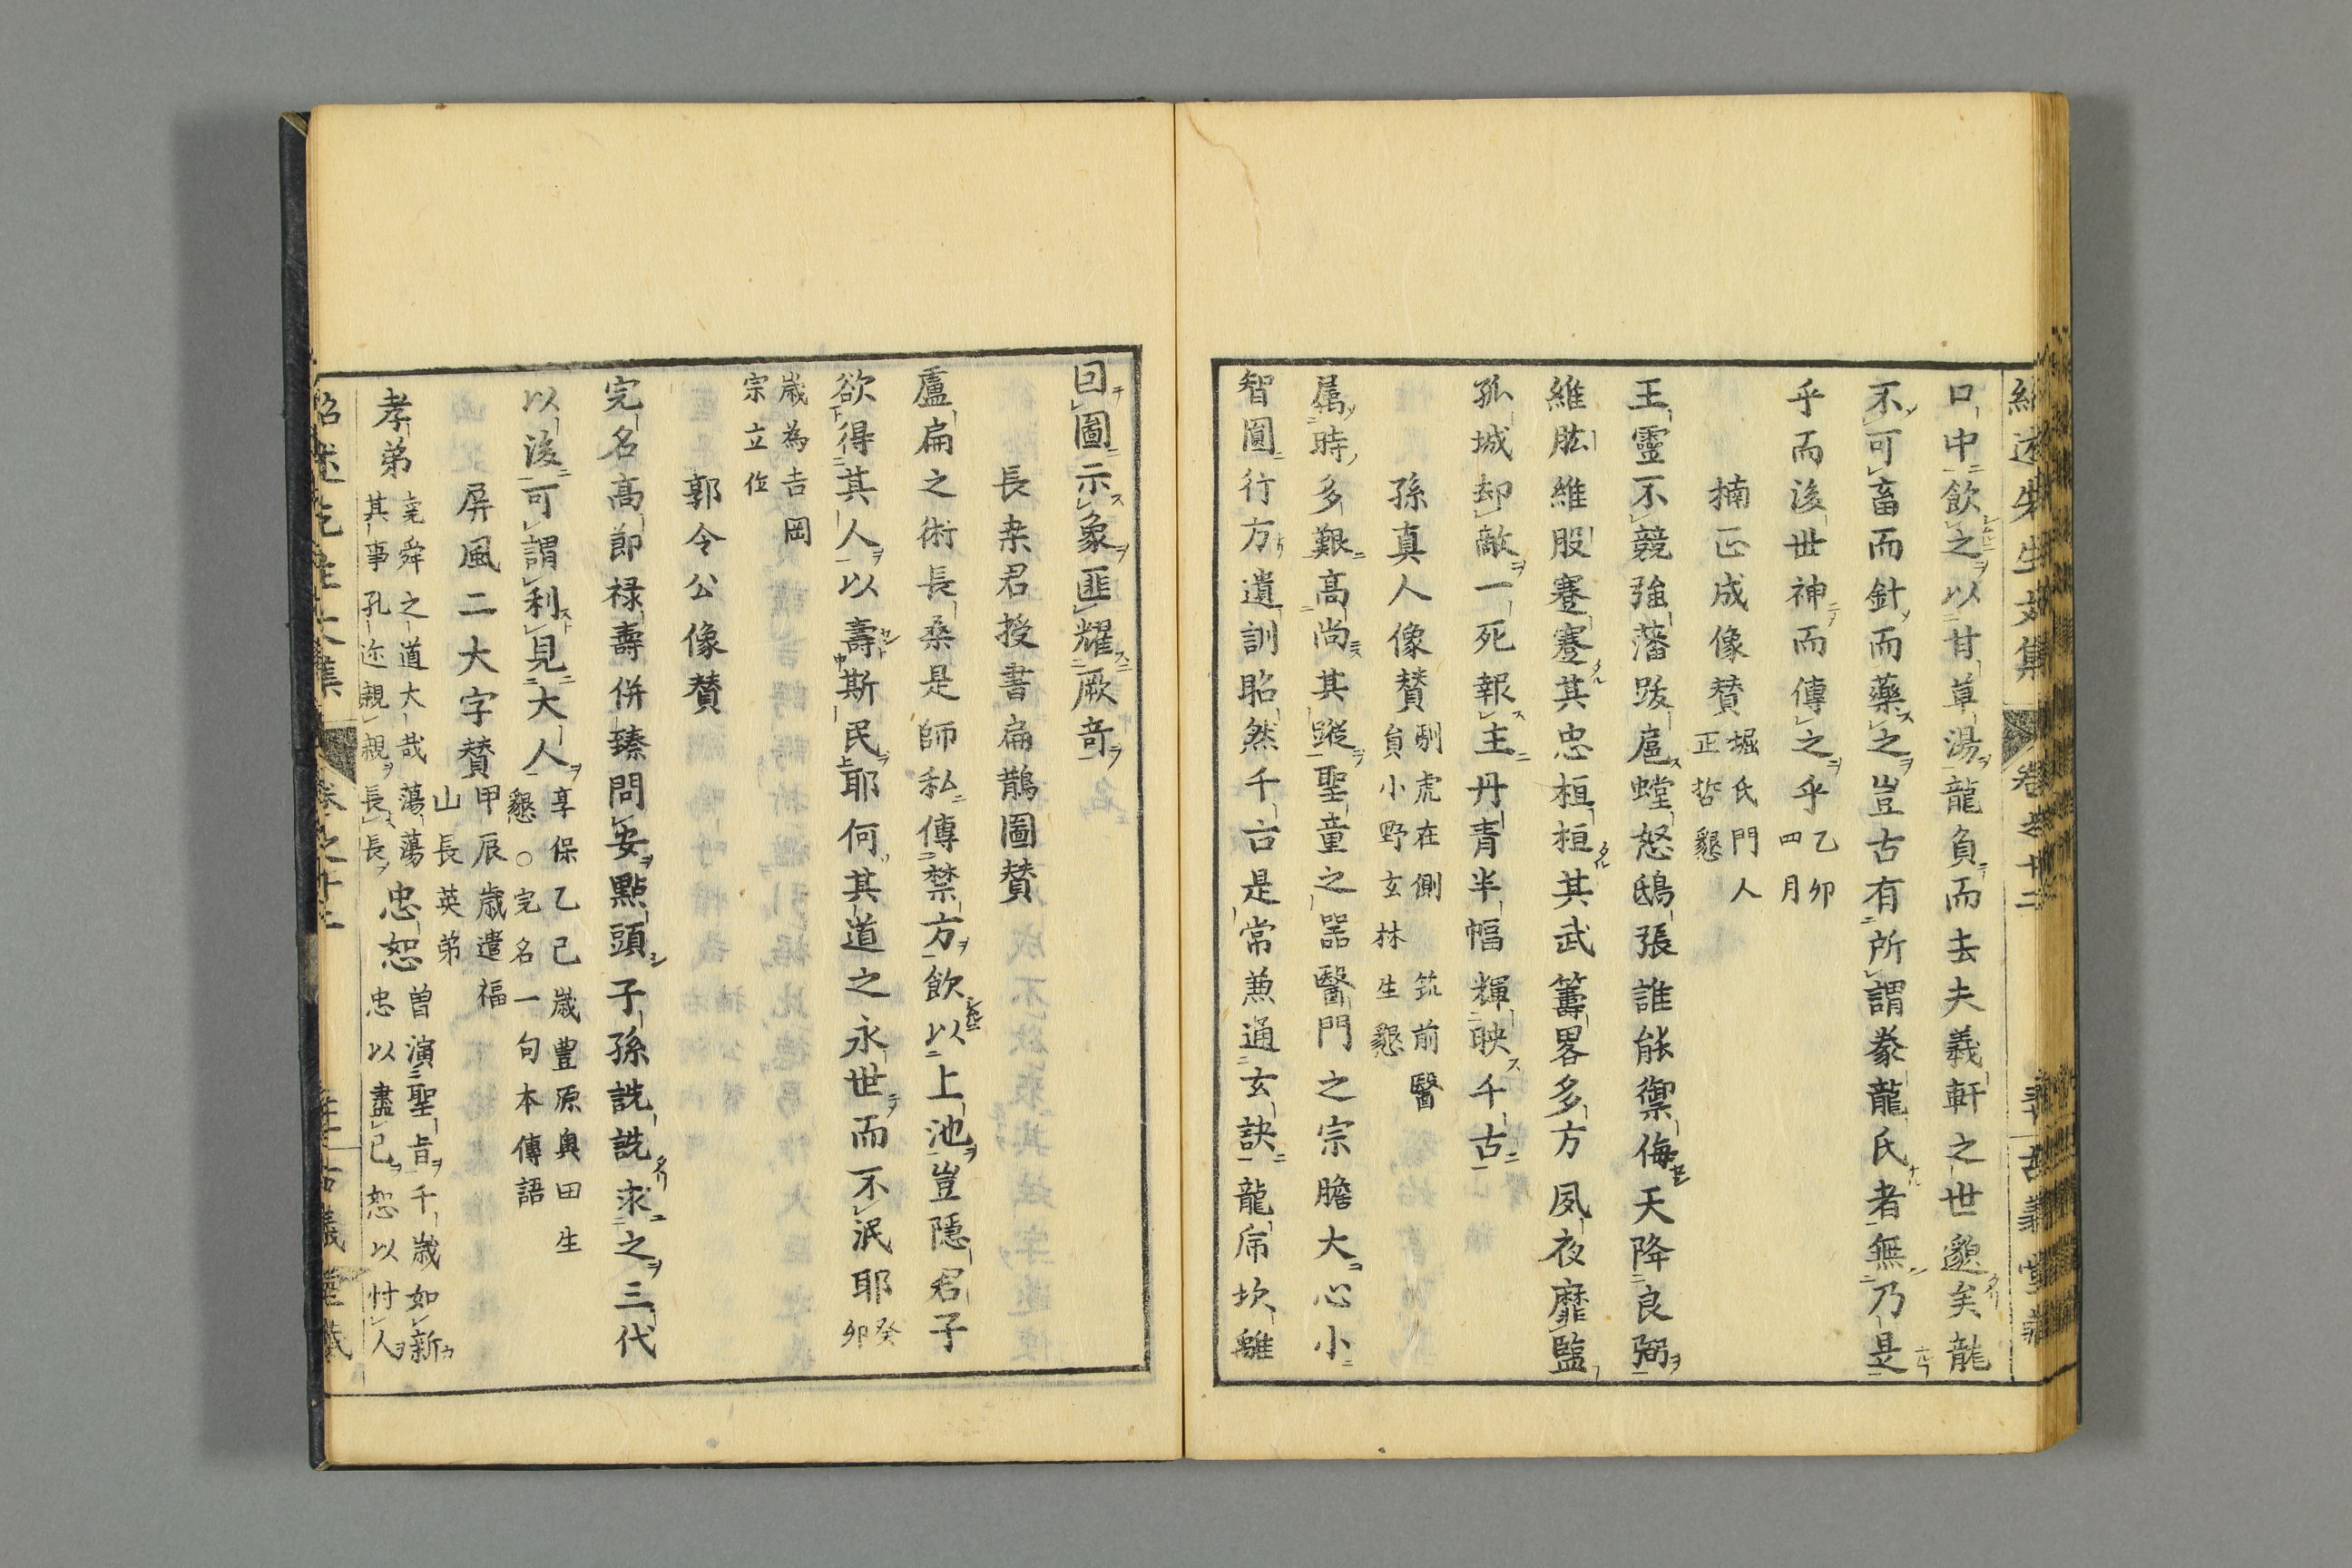 紹述先生文集 卷之十二 古義堂藏
口中飲之以甘草湯龍負而去夫義軒之世邈矣龍
不可畜而針而藥之豈古有所謂豢龍氏者無乃是
乎而後世神而傳之乎乙卯四月
楠正成像賛堀氏門人正哲懇
王靈不競強藩跋扈螳怒鴟張誰能禦侮天降良弼
維肱維股蹇蹇其忠桓桓其武籌畧多方夙夜靡盬
孤城却敵一死報主丹青半幅輝映千古
孫真人像賛馴虎在側筑前醫員小野玄林生懇
属時多艱高尚其蹤聖童之器醫門之宗膽大心小
智圓行方遺訓昭然千古是常兼通玄訣龍席坎離
回圖示象匪耀厥竒
長桒君授書扁鵲圖賛
盧扁之術長桑是師私傳禁方飲以上池豈隱君子
欲得其人以壽斯民耶何其道之永世而不泯耶癸卯
歳為吉岡宗立位
郭令公像賛
完名高節禄壽併臻問安點頭子孫詵詵求之三代
以後可謂利見大人享保乙己歳豊原奥田生懇○完名一句本傳語
屏風二大字賛甲辰歳遣福山長英弟
孝弟堯舜之道大哉蕩蕩其事孔迩親親長長忠恕曽演聖旨千歳如新忠以盡己恕以忖人
紹述先生文集 卷之十二 古義堂藏